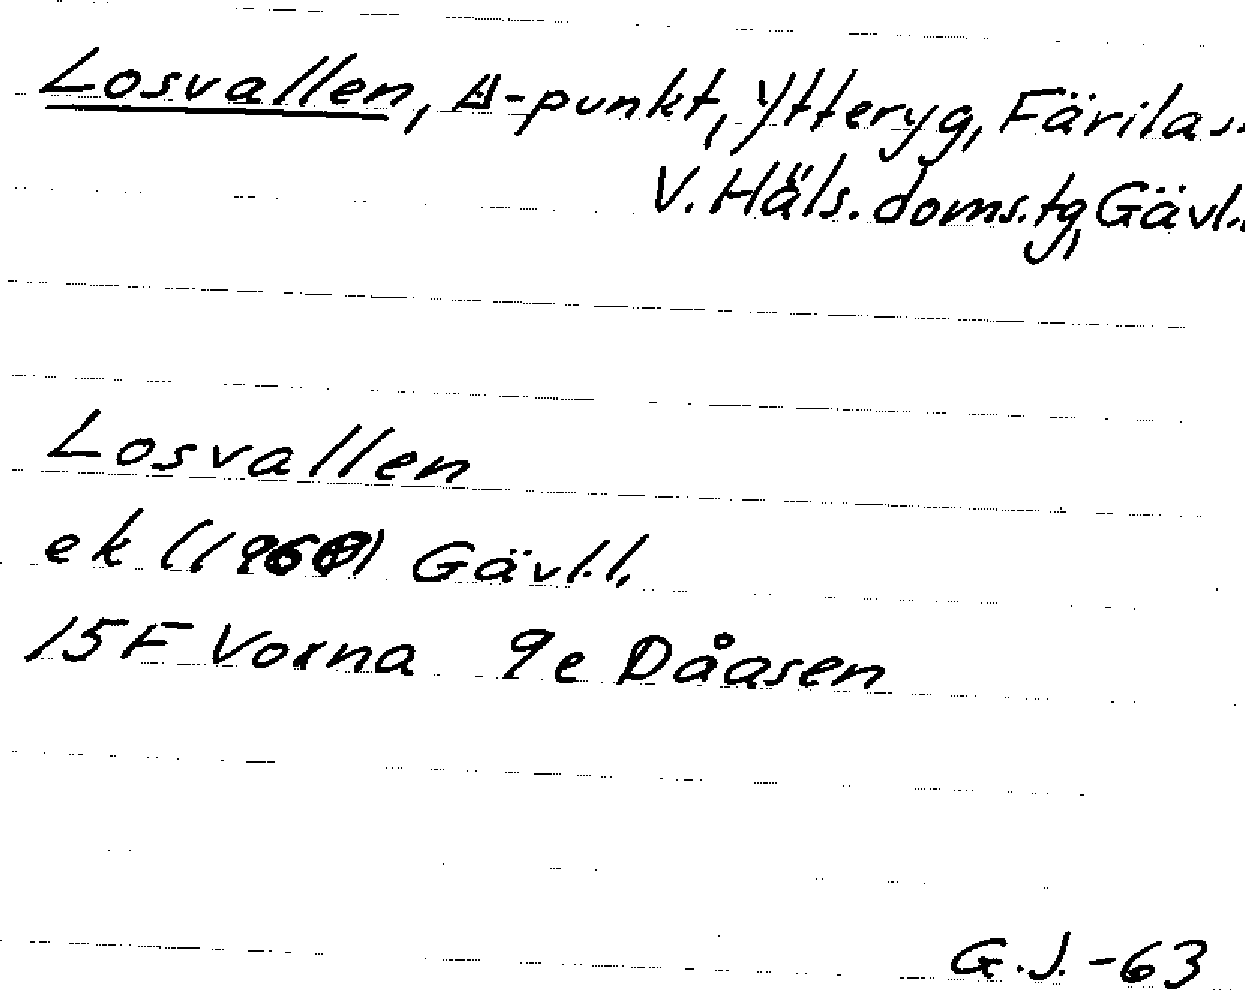 Losvallen, A-punkt, Ytteryg, Färila s.
V. Häls. doms. tg, Gävl.
Losvallen
ek (1960) Gävl.l.
15F Voxna 9e Dåasen
G.J. -63